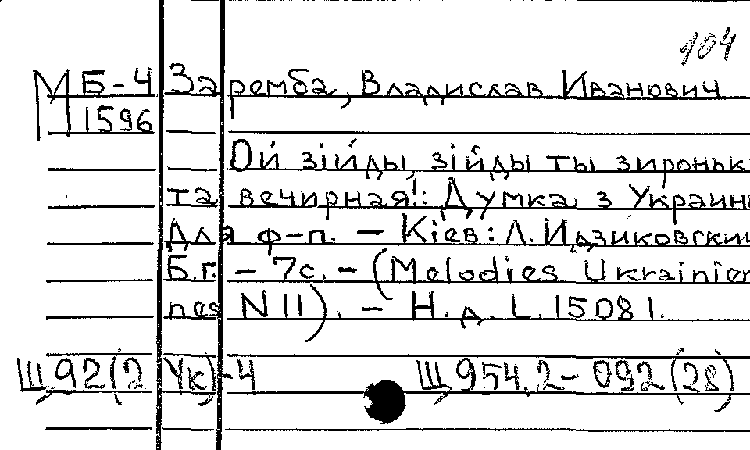 104
М Б-4 Заремба, Владислав Иванович
1596
Ой зiйды, зiйды ты зироньк
та вечирная!: Думка з Украин
для ф-п. – Кiев: Л. Идзиковский
Б.г. – 7с. – (Melodies Ukrainien
nes N 11). – Н.д. L. 15081.
Щ92(2Ук)-4 Щ954.2-092(28)